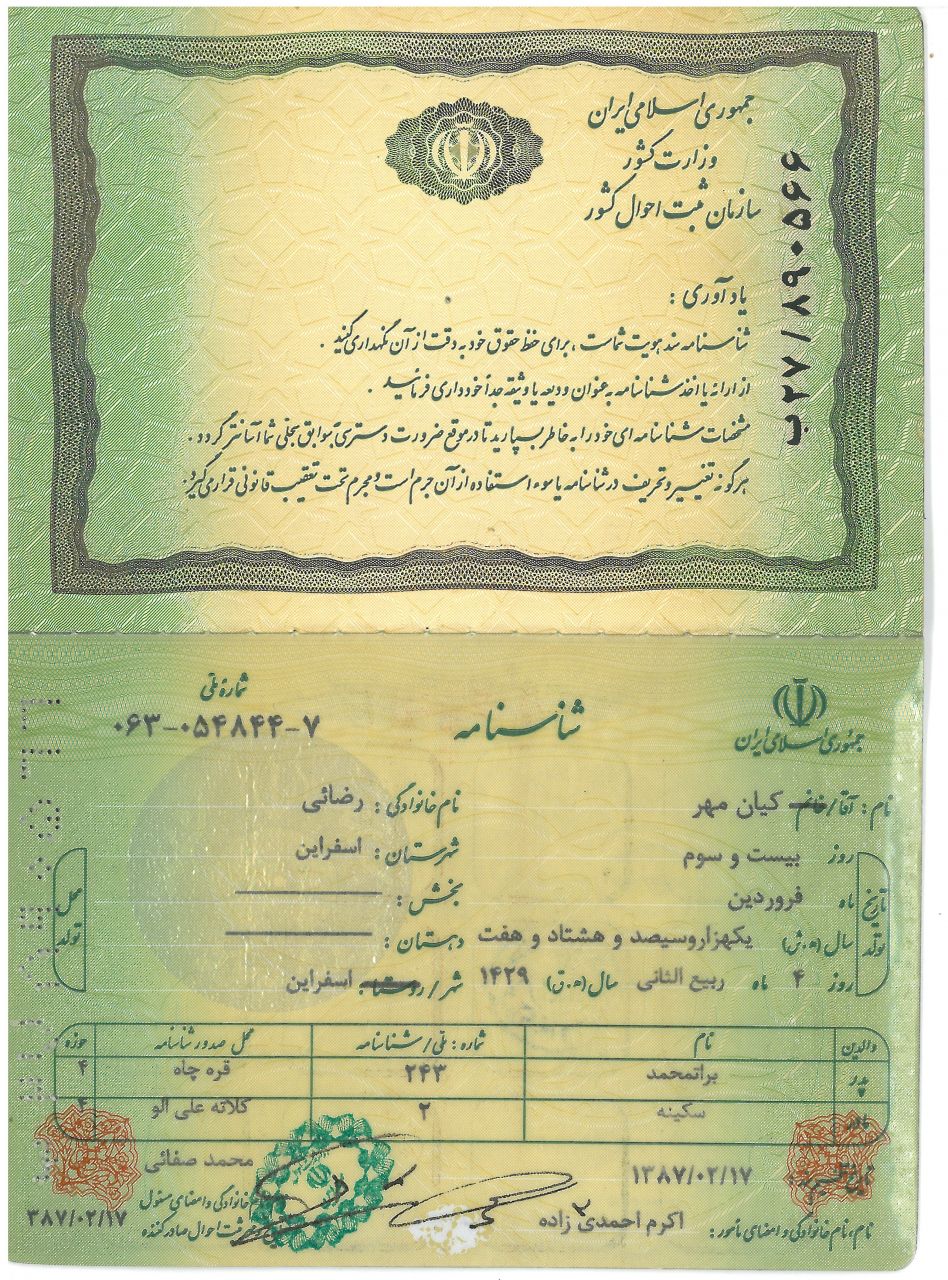 جمهوری اسلامی ایران
وزارت کشور
سازمان ثبت احوال کشور
ب۲۷/۸۹۰۵۶۶
یادآوری :
شناسنامه سند هویت شماست ، برای حفظ حقوق خود به دقت از آن نگهداری کنید .
از ارائه یا اخذ شناسنامه به عنوان ودیعه یا وثیقه جداً خودداری فرمائید .
مشخصات شناسنامه ای خود را به خاطر بسپارید تا در موقع ضرورت دسترسی بسوابق سجلی شما آسانتر گردد .
هرگونه تغییر و تحریف در شناسنامه یا سوء استفاده از آن جرم است و مجرم تحت تعقیب قانونی قرار می گیرد.
جمهوری اسلامی ایران
شناسنامه
شماره ملی
۰۶۳-۰۵۴۸۴۴-۷
نام : آقا/خانم کیان مهر نام خانوادگی : رضائی
تاریخ تولد
روز بیست و سوم
ماه فروردین
سال (ه.ش) یکهزاروسیصد و هشتاد و هفت
روز ۴ ماه ربیع الثانی سال (ه.ق) ۱۴۲۹
محل تولد
شهرستان : اسفراین
بخش :
دهستان :
شهر/روستا : اسفراین
والدین نام شماره : ملی/شناسنامه محل صدور شناسنامه حوزه
پدر براتمحمد ۲۴۳ قره چاه ۴
مادر سکینه ۲ کلاته علی الو ۴
تاریخ تنظیم سند : ۱۳۸۷/۰۲/۱۷ محمد صفائی
نام، نام خانوادگی و امضای مأمور : اکرم احمدی زاده
نام خانوادگی و امضای مسئول
ثبت احوال صادرکننده
۳۸۷/۰۲/۱۷